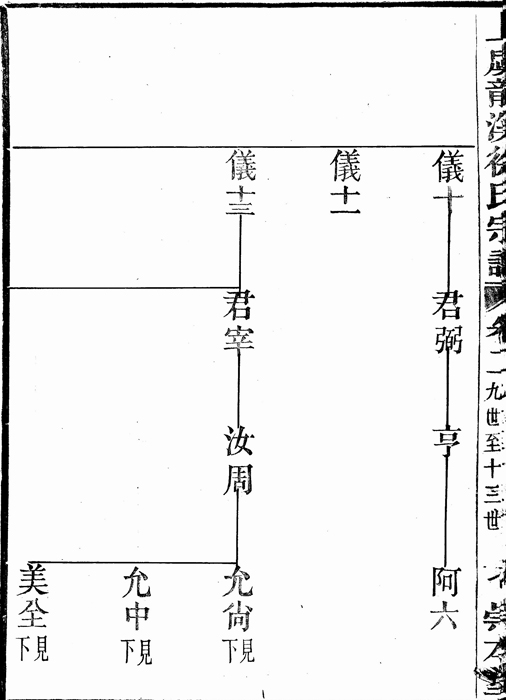 虞龍溪徐氏宗譜 卷二 九世至十三世
儀十
君弼
亨
阿六
儀十一
儀十三
君宰
汝周
允尙
見下
允中
見下
美全
見下